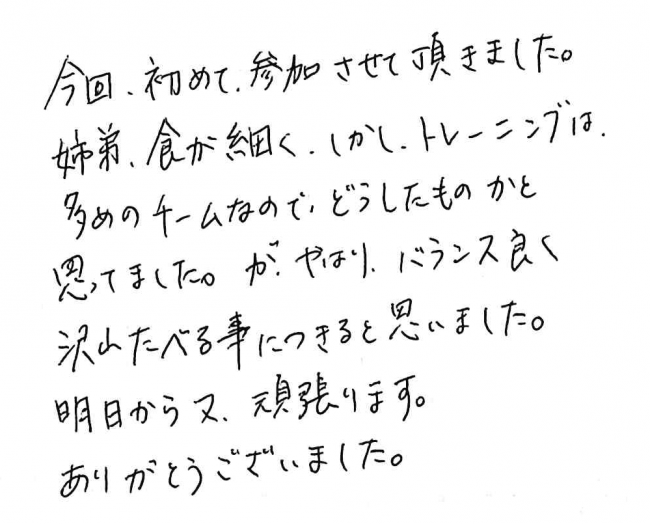 今回、初めて、参加させて頂きました。
姉弟、食が細く、しかし、トレーニングは、
多めのチームなので、どうしたものかと
思ってました。が、やはり、バランス良く
沢山たべる事につきると思いました。
明日から又、頑張ります。
ありがとうございました。